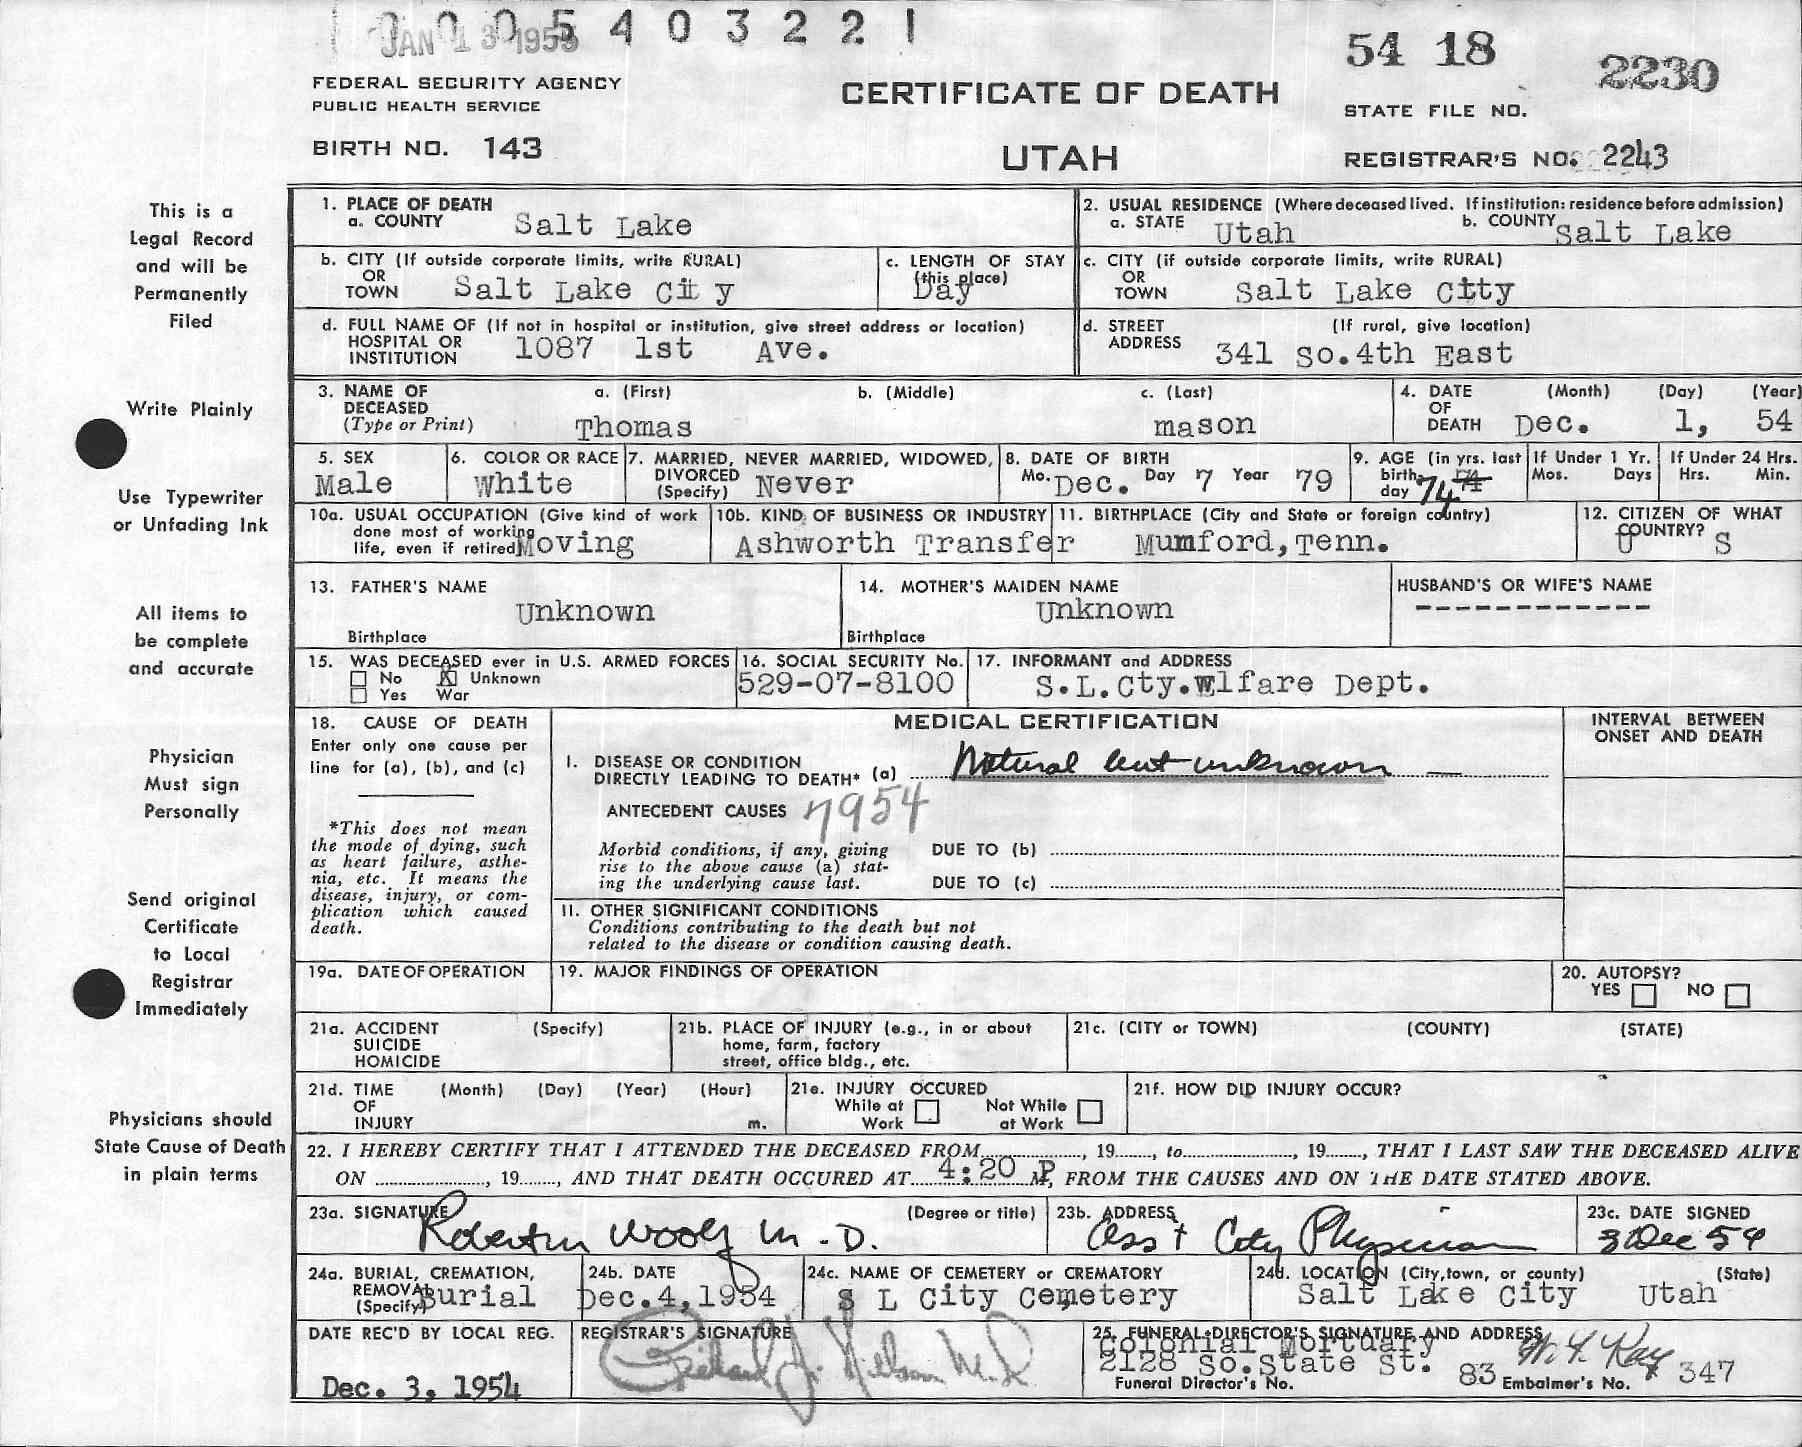 JAN 13 1955
0005403221
54 18
2230
FEDERAL SECURITY AGENCY
PUBLIC HEALTH SERVICE
CERTIFICATE OF DEATH
STATE FILE NO.
BIRTH NO. 143
UTAH
REGISTRAR'S NO. 2243
This is a
Legal Record
and will be
Permanently
Filed
Write Plainly
Use Typewriter
or Unfading Ink
All items to
be complete
and accurate
Physician
Must sign
Personally
Send original
Certificate
to Local
Registrar
Immediately
Physicians should
State Cause of Death
in plain terms
1. PLACE OF DEATH
a. COUNTY Salt Lake
2. USUAL RESIDENCE (Where deceased lived. If institution: residence before admission)
a. STATE Utah b. COUNTY Salt Lake
b. CITY (If outside corporate limits, write RURAL)
OR
TOWN Salt Lake City
c. LENGTH OF STAY
(this place)
Day
c. CITY (if outside corporate limits, write RURAL)
OR
TOWN Salt Lake Citty
d. FULL NAME OF (If not in hospital or institution, give street address or location)
HOSPITAL OR
INSTITUTION 1087 1st Ave.
d. STREET (If rural, give location)
ADDRESS 341 So.4th East
3. NAME OF a. (First) b. (Middle) c. (Last)
DECEASED
(Type or Print) Thomas mason
4. DATE (Month) (Day) (Year)
OF
DEATH Dec. 1, 54
5. SEX
Male
6. COLOR OR RACE
White
7. MARRIED, NEVER MARRIED, WIDOWED,
DIVORCED
(Specify) Never
8. DATE OF BIRTH
Mo. Dec. Day 7 Year 79
9. AGE (in yrs. last
birth-
day 74
If Under 1 Yr.
Mos. Days
If Under 24 Hrs.
Hrs. Min.
10a. USUAL OCCUPATION (Give kind of work
done most of working
life, even if retired) Moving
10b. KIND OF BUSINESS OR INDUSTRY
Ashworth Transfer
11. BIRTHPLACE (City and State or foreign country)
Mumford, Tenn.
12. CITIZEN OF WHAT
COUNTRY?
U S
13. FATHER'S NAME
Unknown
Birthplace
14. MOTHER'S MAIDEN NAME
Unknown
Birthplace
HUSBAND'S OR WIFE'S NAME
------------
15. WAS DECEASED ever in U.S. ARMED FORCES
No X Unknown
Yes War
16. SOCIAL SECURITY No.
529-07-8100
17. INFORMANT and ADDRESS
S.L.Cty.Wlfare Dept.
18. CAUSE OF DEATH
Enter only one cause per
line for (a), (b), and (c)
*This does not mean
the mode of dying, such
as heart failure, asthe-
nia, etc. It means the
disease, injury, or com-
plication which caused
death.
MEDICAL CERTIFICATION
I. DISEASE OR CONDITION
DIRECTLY LEADING TO DEATH* (a) Natural but unknown
ANTECEDENT CAUSES 7954
Morbid conditions, if any, giving
rise to the above cause (a) stat-
ing the underlying cause last.
DUE TO (b)
DUE TO (c)
II. OTHER SIGNIFICANT CONDITIONS
Conditions contributing to the death but not
related to the disease or condition causing death.
INTERVAL BETWEEN
ONSET AND DEATH
19a. DATE OF OPERATION
19. MAJOR FINDINGS OF OPERATION
20. AUTOPSY?
YES NO
21a. ACCIDENT (Specify)
SUICIDE
HOMICIDE
21b. PLACE OF INJURY (e.g., in or about
home, farm, factory
street, office bldg., etc.
21c. (CITY or TOWN) (COUNTY) (STATE)
21d. TIME (Month) (Day) (Year) (Hour)
OF
INJURY m.
21e. INJURY OCCURED
While at Not While
Work at Work
21f. HOW DID INJURY OCCUR?
22. I HEREBY CERTIFY THAT I ATTENDED THE DECEASED FROM , 19 , to , 19 , THAT I LAST SAW THE DECEASED ALIVE
ON , 19 , AND THAT DEATH OCCURED AT 4:20 P M, FROM THE CAUSES AND ON THE DATE STATED ABOVE.
23a. SIGNATURE (Degree or title)
M.D.
23b. ADDRESS
Ass't City Physician
23c. DATE SIGNED
3 Dec 54
24a. BURIAL, CREMATION,
REMOVAL
(Specify) Burial
24b. DATE
Dec.4,1954
24c. NAME OF CEMETERY or CREMATORY
S L City Cemetery
24d. LOCATION (City, town, or county) (State)
Salt Lake City Utah
DATE REC'D BY LOCAL REG.
Dec. 3, 1954
REGISTRAR'S SIGNATURE
25. FUNERAL DIRECTOR'S SIGNATURE AND ADDRESS
Colonial Mortuary
2128 So.State St. 83 347
Funeral Director's No. Embalmer's No.